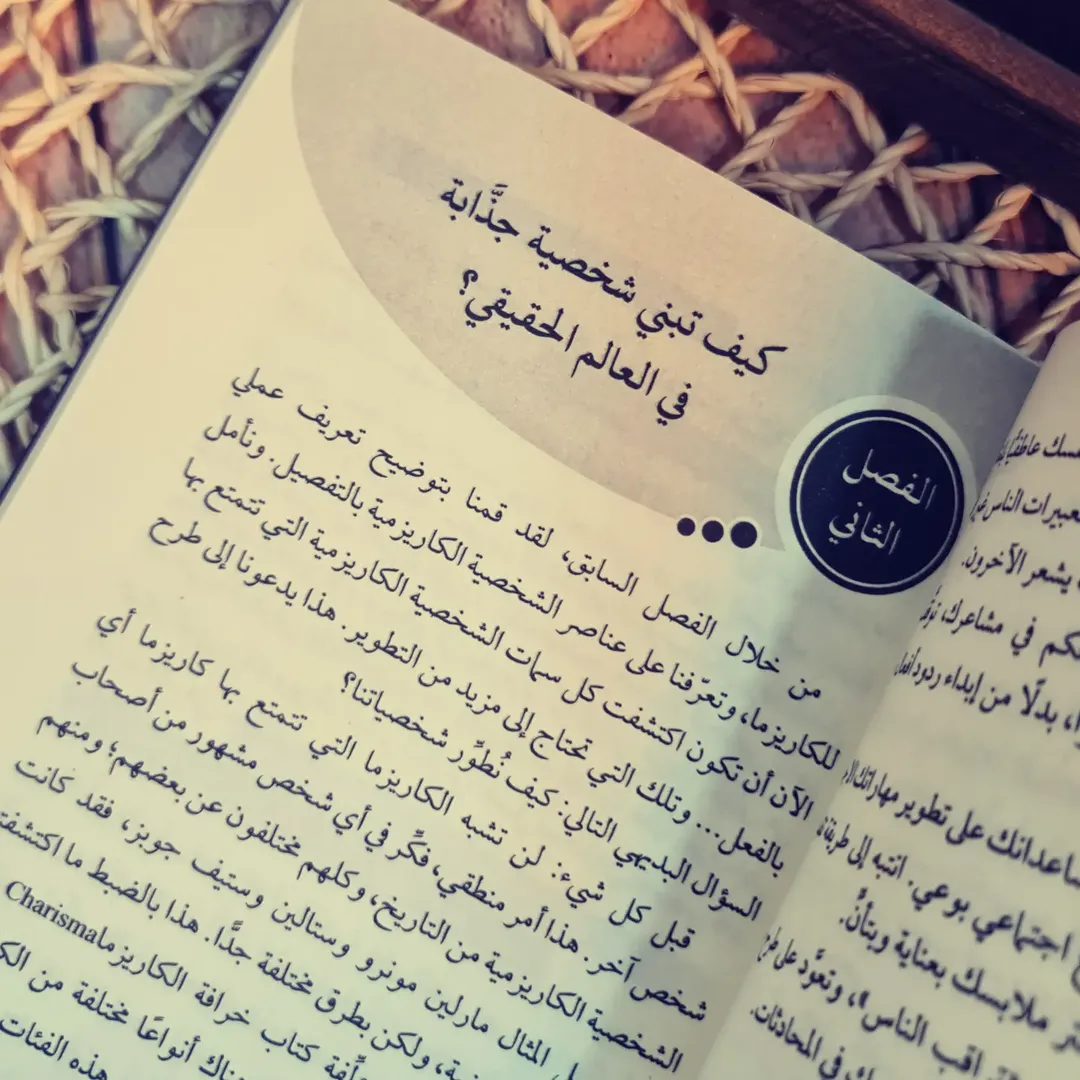 كيف تبني شخصية جذَّابة
في العالم الحقيقي؟
الفصل
الثاني
من خلال الفصل السابق، لقد قمنا بتوضيح تعريف عملي
للكاريزما، وتعرّفنا على عناصر الشخصية الكاريزمية بالتفصيل. ونأمل
الآن أن تكون اكتشفت كل سمات الشخصية الكاريزمية التي تتمتع بها
بالفعل... وتلك التي تحتاج إلى مزيد من التطوير. هذا يدعونا إلى طرح
السؤال البديهي التالي: كيف نُطوِّر شخصياتنا؟
قبل كل شيء: لن تشبه الكاريزما التي تتمتع بها كاريزما أي
شخص آخر. هذا أمر منطقي، فكِّر في أي شخص مشهور من أصحاب
الشخصية الكاريزمية من التاريخ، وكلهم مختلفون عن بعضهم؛ ومنهم
المثال مارلين مونرو وستالين وستيف جوبز، فقد كانت
ولكن بطرق مختلفة جدًّا. هذا بالضبط ما
كتاب خرافة الكاريزما Charisma
أنواعًا مختلفة من
هذه الفئات
الناس
يشعر الآخرون.
في مشاعرك،
بدلًا من إبداء ردود
على تطوير مهاراتك
اجتماعي بوعي. انتبه إلى
ملابسك بعناية وبتأنٍّ.
الناس»، وتعوَّد على
في المحادثات.